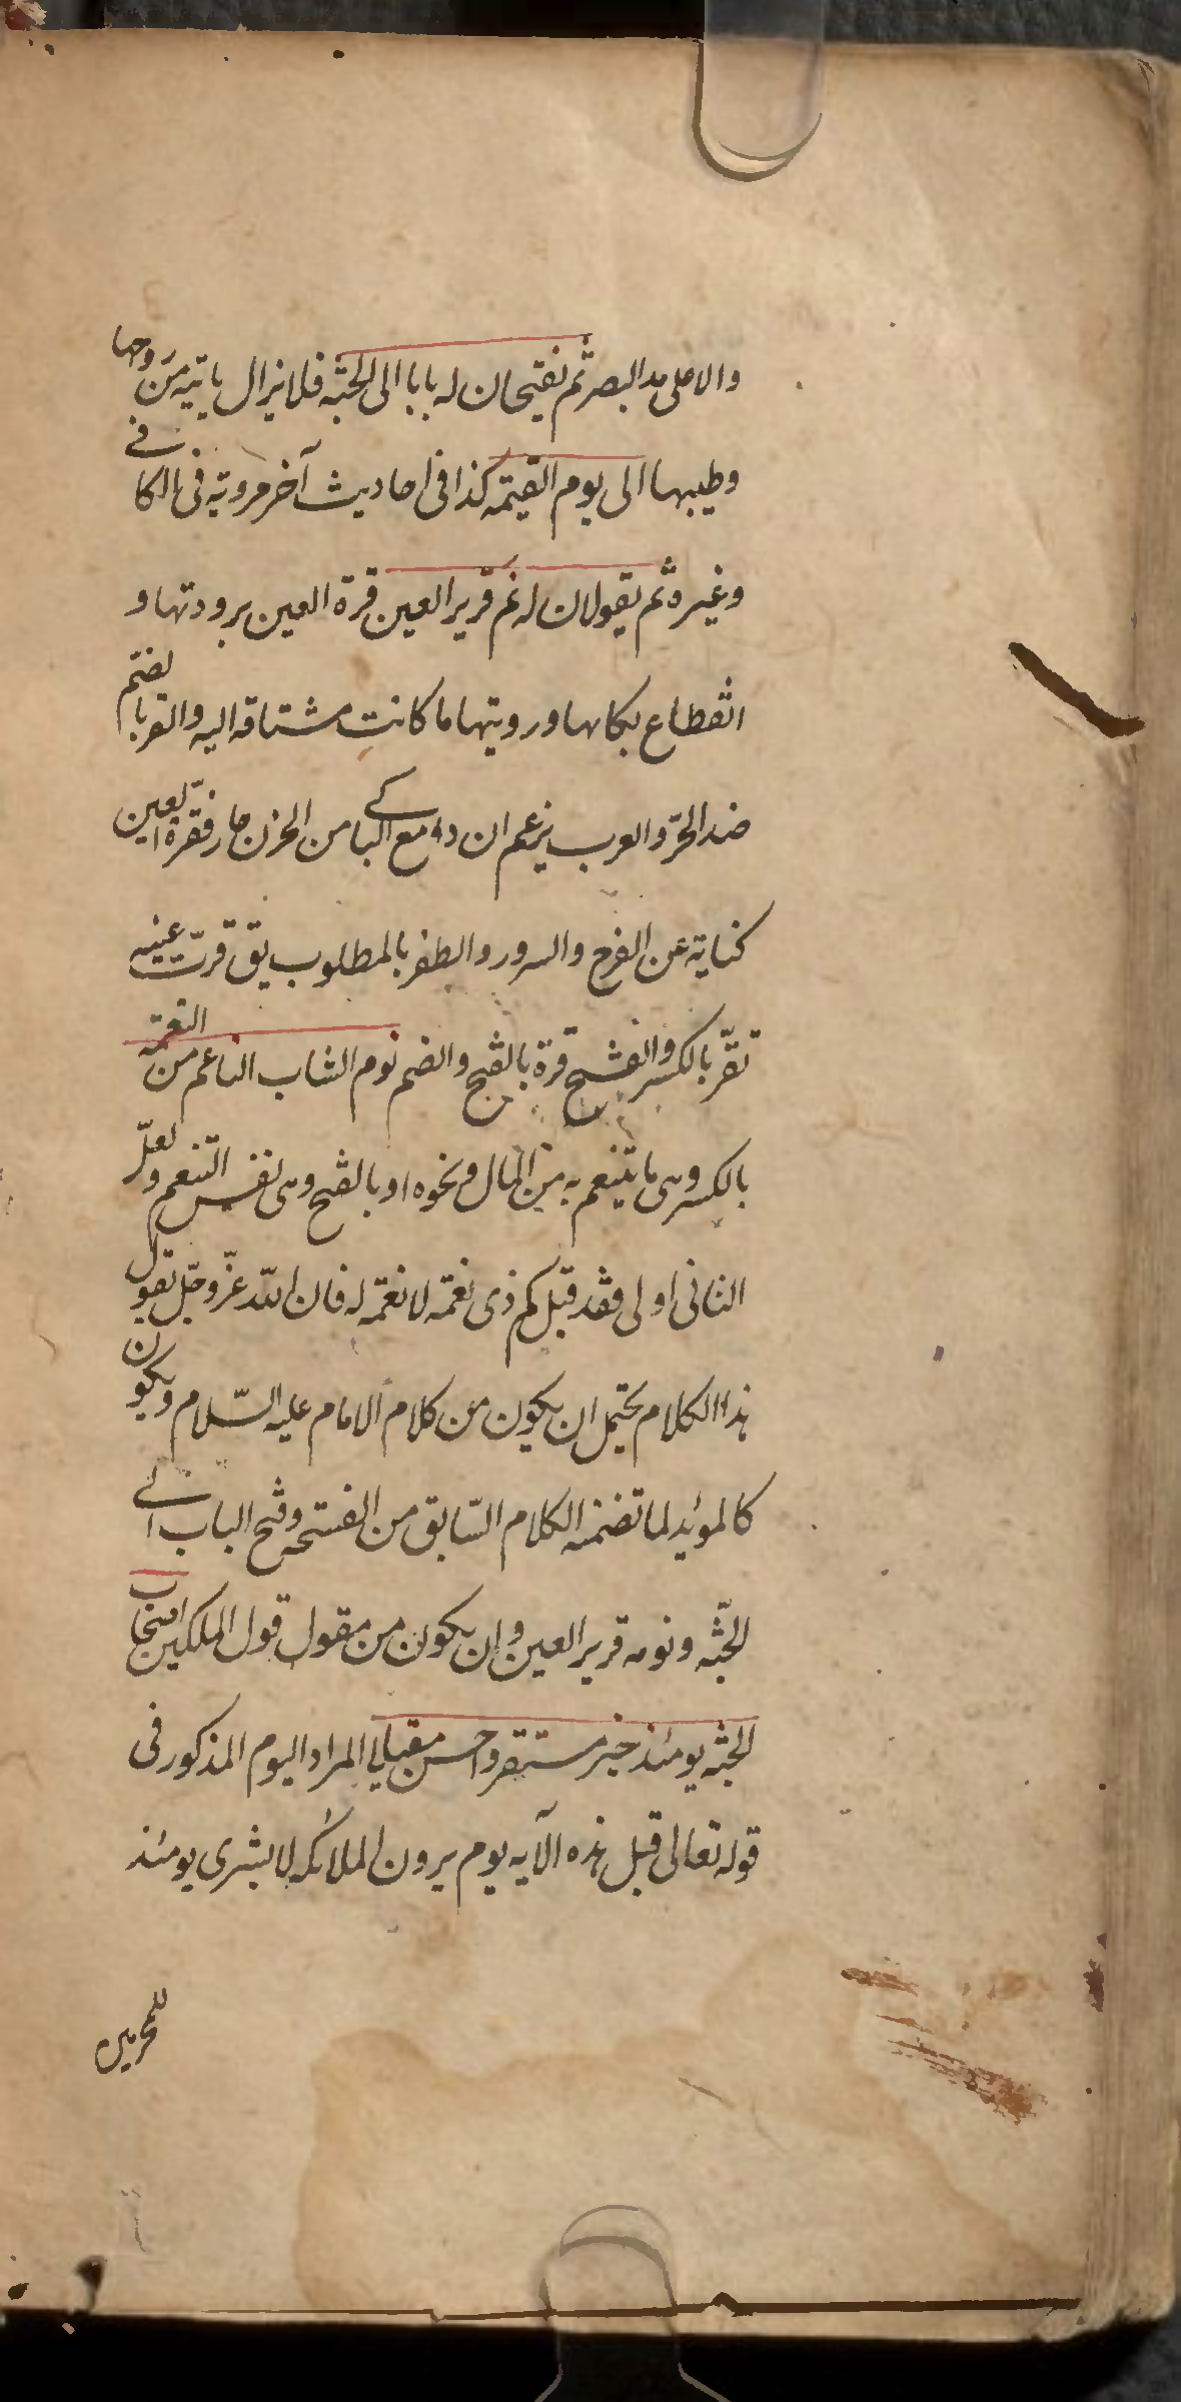 والاعلى مد البصر ثم تفتحان له بابا الى الجنة فلا يزال ياتيه من روحها
وطيبها الى يوم القيمة كذا فى احاديث آخر مروية فى الكافي
وغيره ثم يقولان له نم قرير العين قرة العين برودتها و
انقطاع بكائها ورويتها ما كانت مشتاقة اليه والقر بالضم
ضد الحرّ والعرب يزعم ان دمع الباكي من الحزن حار فقرة العين
كناية عن الفرح والسرور والظفر بالمطلوب يق قرّت عينه
تقرّ بالكسر والفتح قرة بالفتح والضم نوم الشاب الناعم من النعمة
بالكسر وهى ما يتنعم به من المال ونحوه او بالفتح وهى نفس التنعم ولعلّ
الثانى اولى فقد قيل كم ذى نعمة لا نعمة له فان الله عزّ وجلّ يقول
هذا الكلام يحتمل ان يكون من كلام الامام عليه السّلام ويكون
كالمؤيد لما تضمنه الكلام السّابق من الفسحة وفتح الباب الى
الجنّة ونومه قرير العين وان يكون من مقول قول الملكين اصحاب
الجنة يومئذ خير مستقر واحسن مقيلا المراد اليوم المذكور فى
قوله تعالى قبل هذه الآية يوم يرون الملائكه لا بشرى يومئذ
للمجرمين